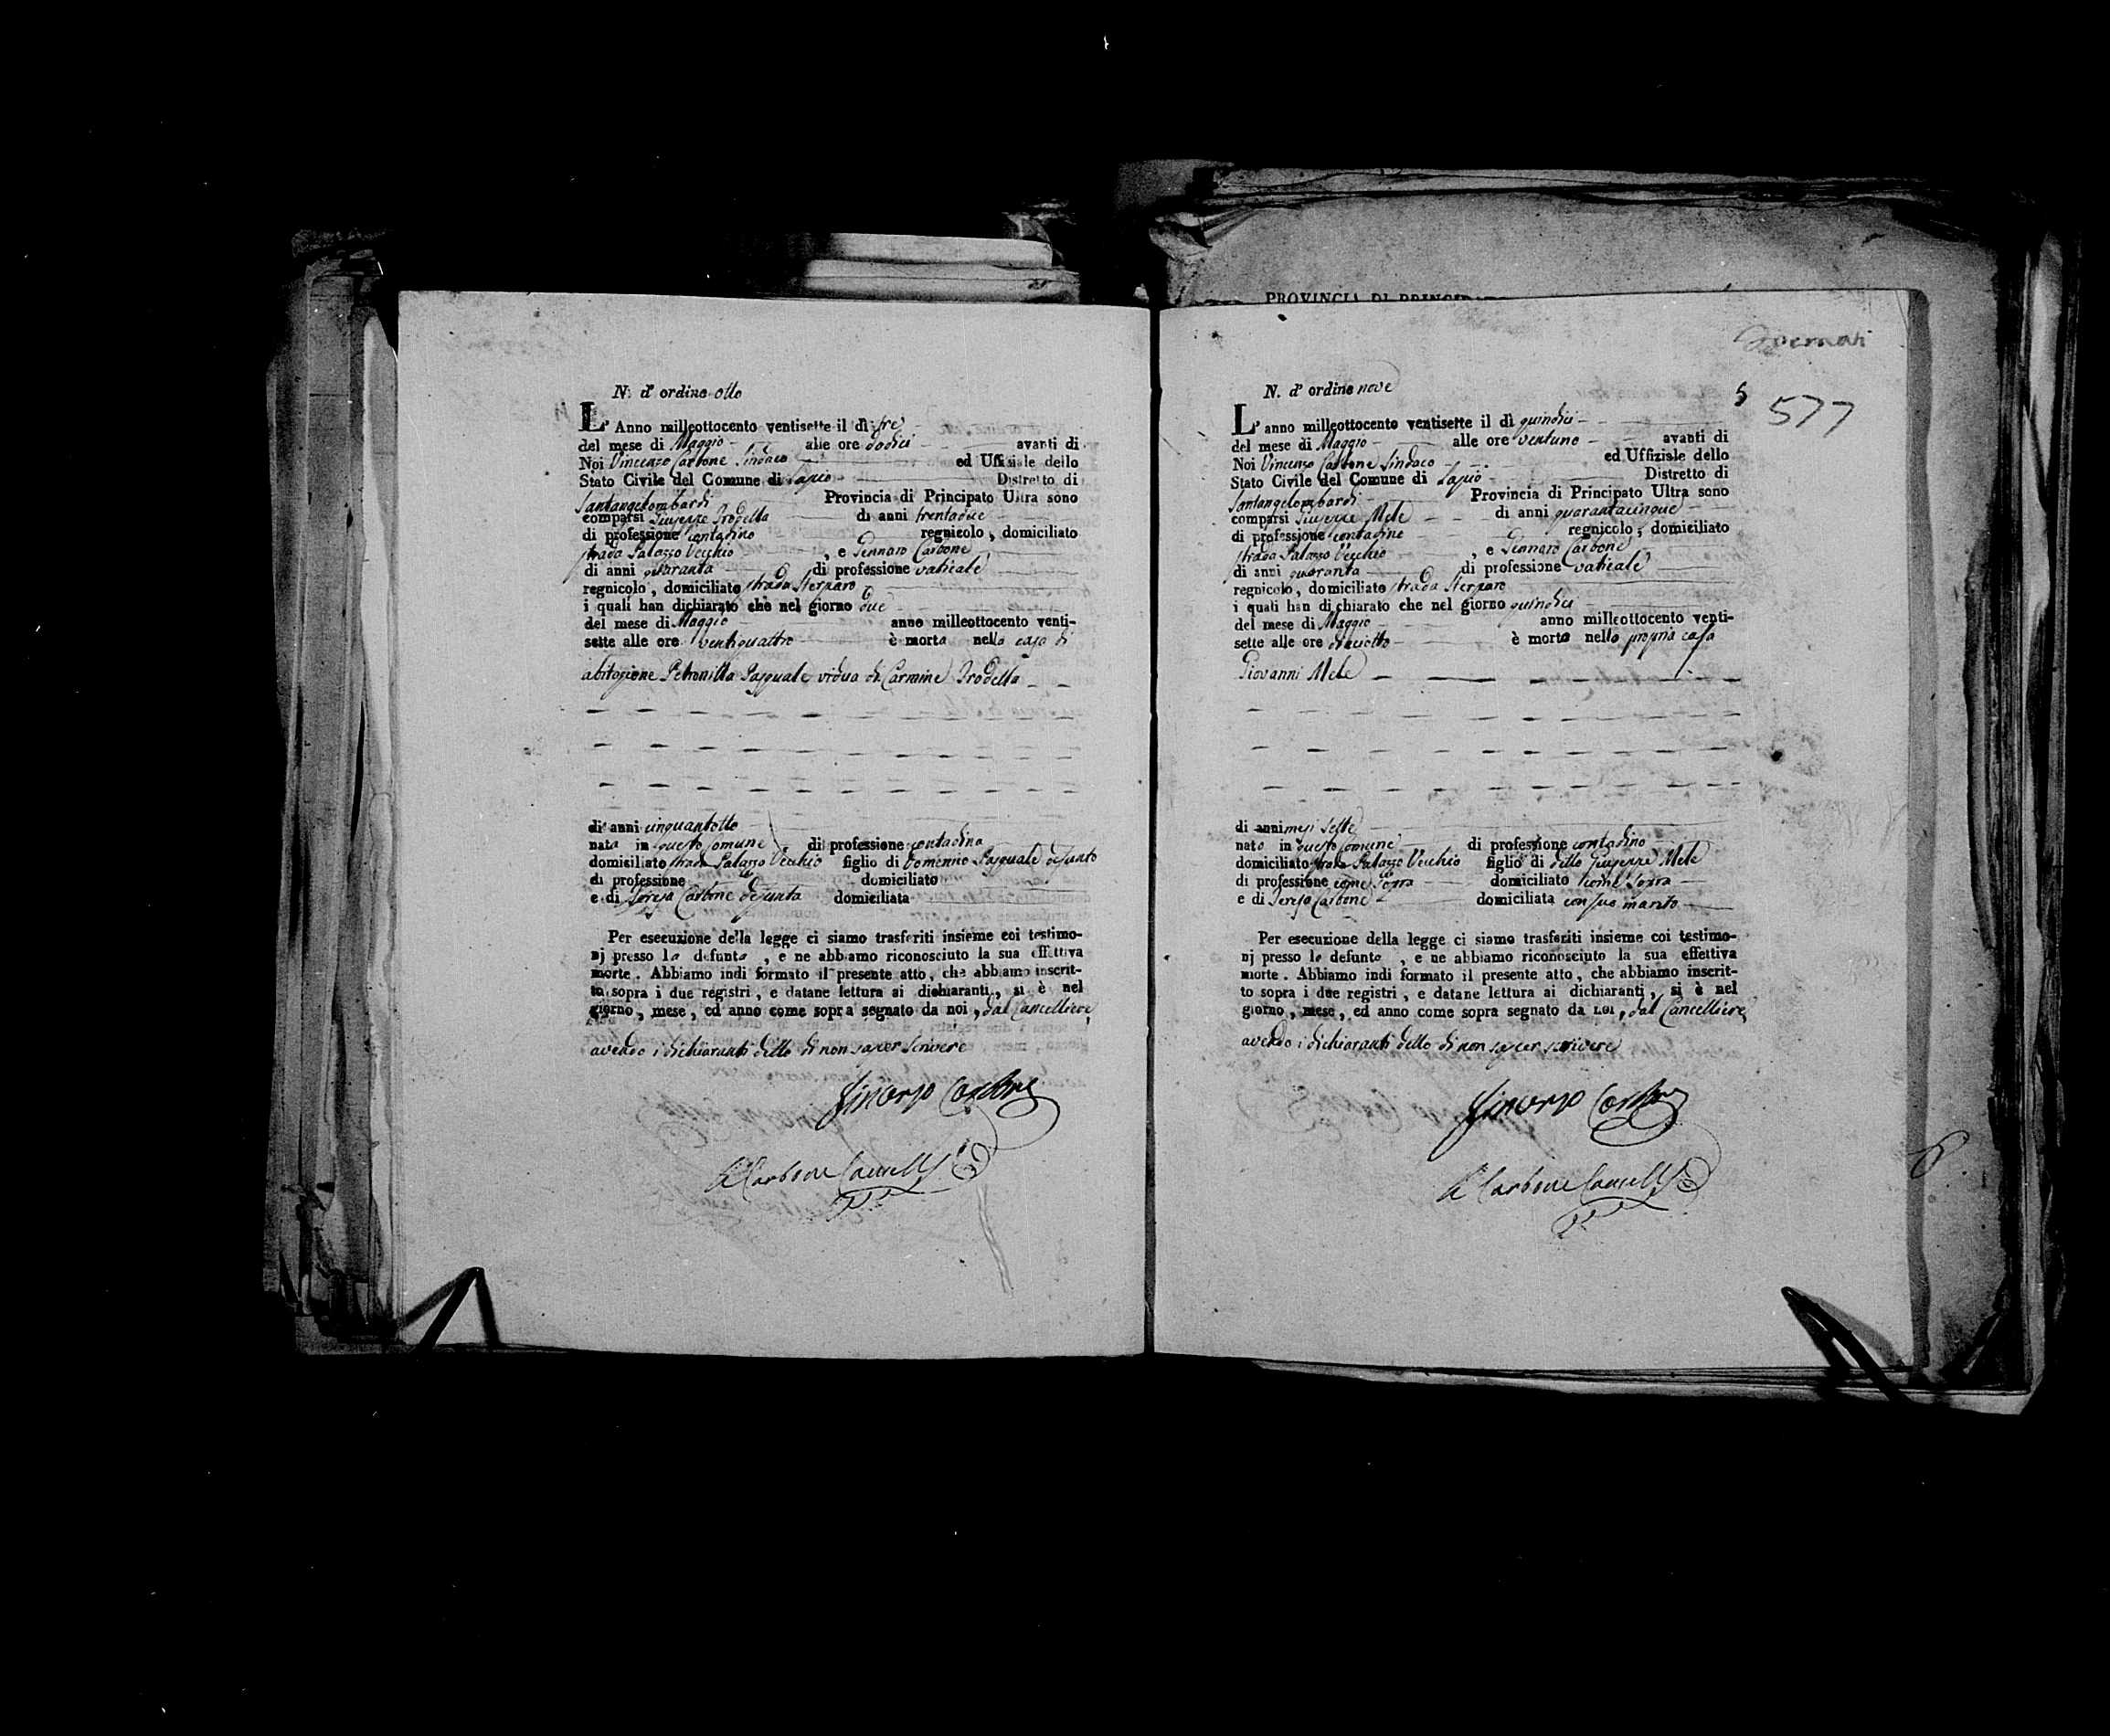 N. d' ordine otto
L' Anno milleottocento ventisette il dì tre
del mese di Maggio alle ore dodici avanti di
Noi Vincenzo Carbone Sindaco ed Uffiziale dello
Stato Civile del Comune di Lapio Distretto di
Santangelombardi Provincia di Principato Ultra sono
comparsi Giuseppe Trodella di anni trentadue
di professione contadino regnicolo, domiciliato
strada Palazzo Vecchio, e Gennaro Carbone
di anni quaranta di professione vaticale
regnicolo, domiciliato strada Sterparo
i quali han dichiarato che nel giorno due
del mese di Maggio anno milleottocento venti-
sette alle ore ventiquattro è morta nella casa di
abitazione Petronilla Pasquale vidua di Carmine Trodella
di anni cinquantotto
nata in questo Comune di professione contadina
domiciliato strada Palazzo Vecchio figlio di Domenico Pasquale defunto
di professione domiciliato
e di Teresa Carbone defunta domiciliata
Per esecuzione della legge ci siamo trasferiti insieme coi testimo-
nj presso la defunta, e ne abbiamo riconosciuto la sua effettiva
morte. Abbiamo indi formato il presente atto, che abbiamo inscrit-
to sopra i due registri, e datane lettura ai dichiaranti, si è nel
giorno, mese, ed anno come sopra segnato da noi, dal Cancelliere
avendo i dichiaranti detto di non saper scrivere
Vincenzo Carbone
Carbone Cancell.
PROVINCIA DI
5
577
N. d' ordine nove
L' anno milleottocento ventisette il dì quindici
del mese di Maggio alle ore ventuno avanti di
Noi Vincenzo Carbone Sindaco ed Uffiziale dello
Stato Civile del Comune di Lapio Distretto di
Santangelombardi Provincia di Principato Ultra sono
comparsi Giuseppe Mele di anni quarantacinque
di professione contadino regnicolo, domiciliato
strada Palazzo Vecchio, e Gennaro Carbone
di anni quaranta di professione vaticale
regnicolo, domiciliato strada Sterparo
i quali han dichiarato che nel giorno quindici
del mese di Maggio anno milleottocento venti-
sette alle ore diciotto è morto nella propria casa
Giovanni Mele
di anni mesi sette
nato in questo Comune di professione contadino
domiciliato strada Palazzo Vecchio figlio di detto Giuseppe Mele
di professione come sopra domiciliato come sopra
e di Teresa Carbone domiciliata con suo marito
Per esecuzione della legge ci siamo trasferiti insieme coi testimo-
nj presso lo defunto, e ne abbiamo riconosciuto la sua effettiva
morte. Abbiamo indi formato il presente atto, che abbiamo inscrit-
to sopra i due registri, e datane lettura ai dichiaranti, si è nel
giorno, mese, ed anno come sopra segnato da noi, dal Cancelliere
avendo i dichiaranti detto di non saper scrivere
Vincenzo Carbone
Carbone Cancell.